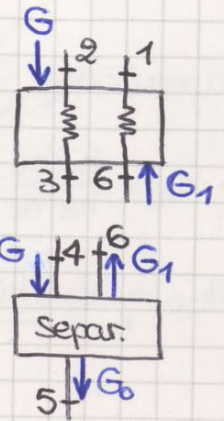 G
2 1
3 6 G₁
G 4 6 G₁
separ.
5 G₀